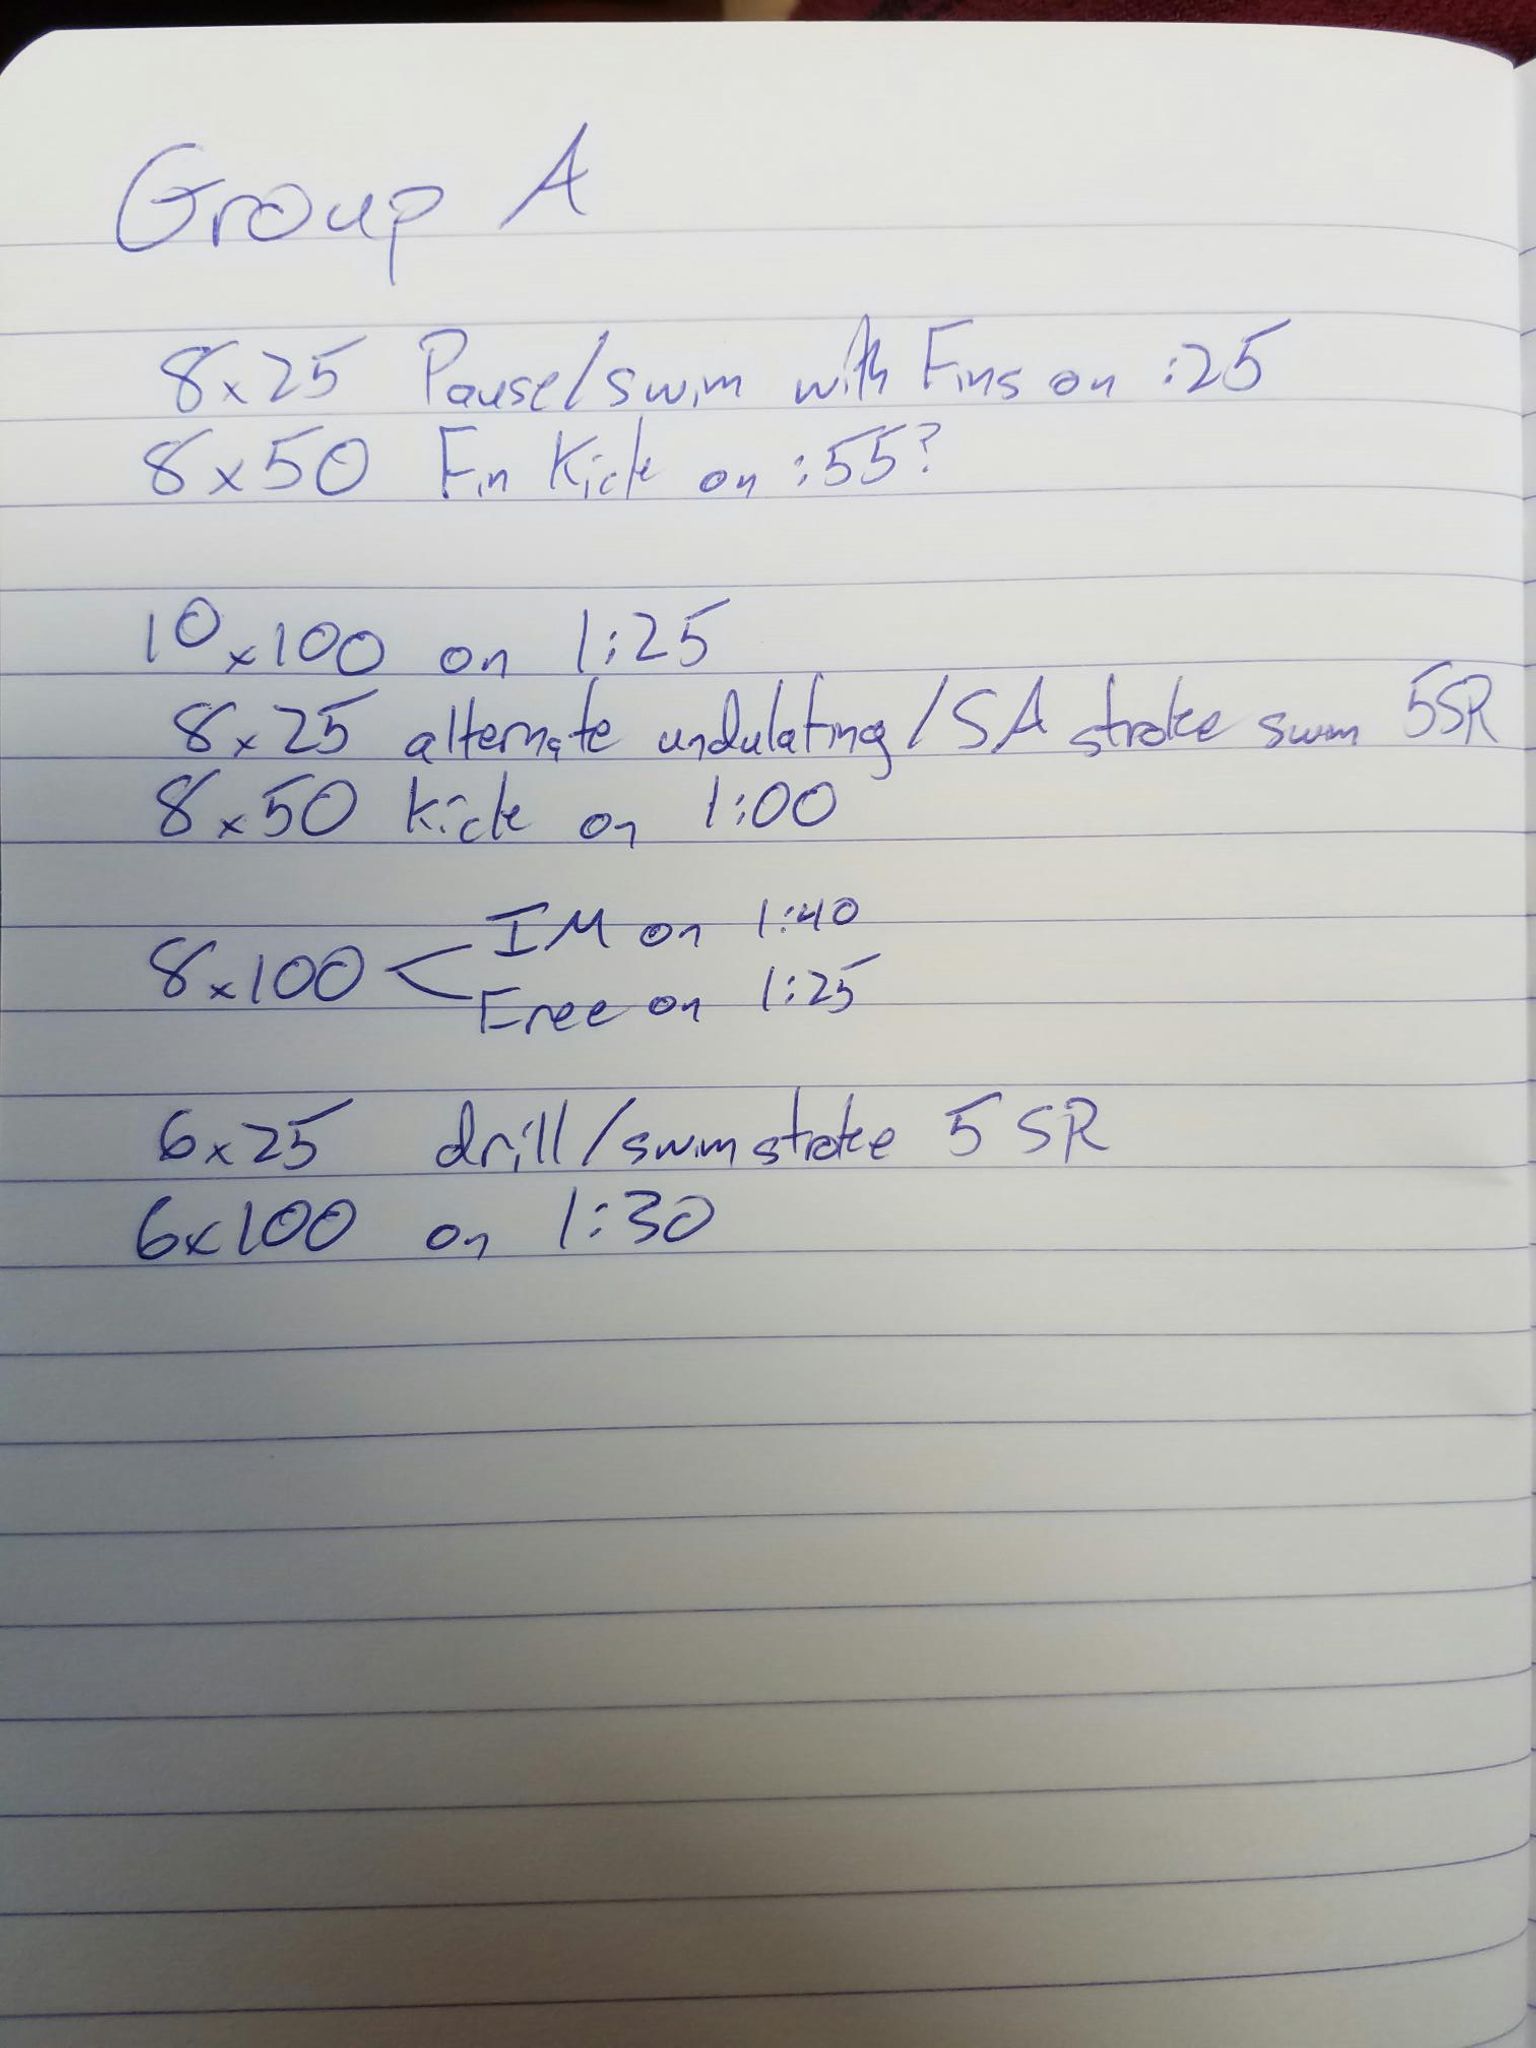 Group A
8x25 Pause/swim with Fins on :25
8x50 Fin Kick on :55?
10x100 on 1:25
8x25 alternate undulating/SA stroke swim 5SR
8x50 Kick on 1:00
8x100 < IM on 1:40
Free on 1:25
6x25 drill/swim stroke 5 SR
6x100 on 1:30